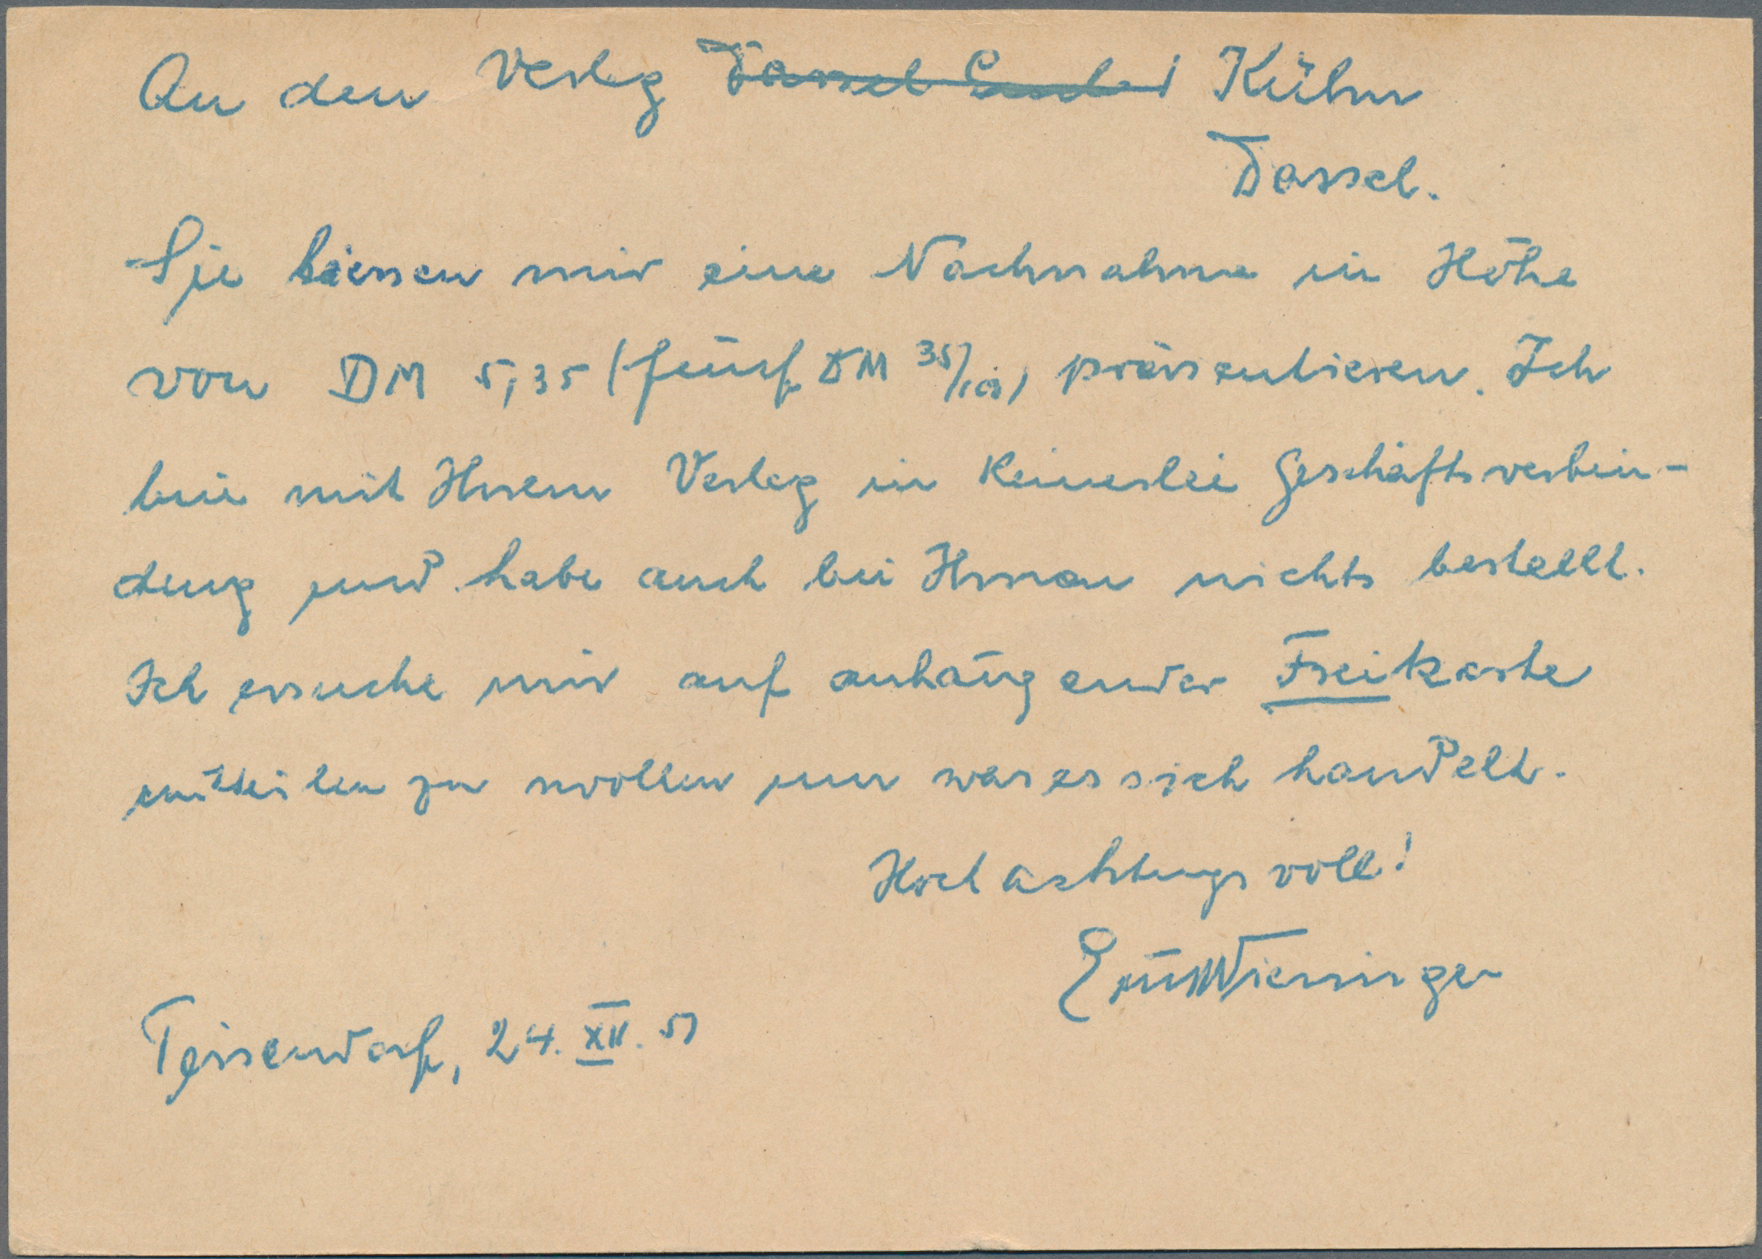 An den Verlg Dassel Kühn
Dassel.
Sie liessen mir eine Nachnahme in Höhe
von DM 5,35 (fünf DM 35/100) präsentieren. Ich
bin mit Ihrem Verlag in keinerlei Geschäftsverbin-
dung und habe auch bei Ihnen nichts bestellt.
Ich ersuche mir auf anhängender Freikarte
mitteilen zu wollen um was es sich handelt.
Hochachtungsvoll!
Wieninger
Teisendorf, 24. XII. 51